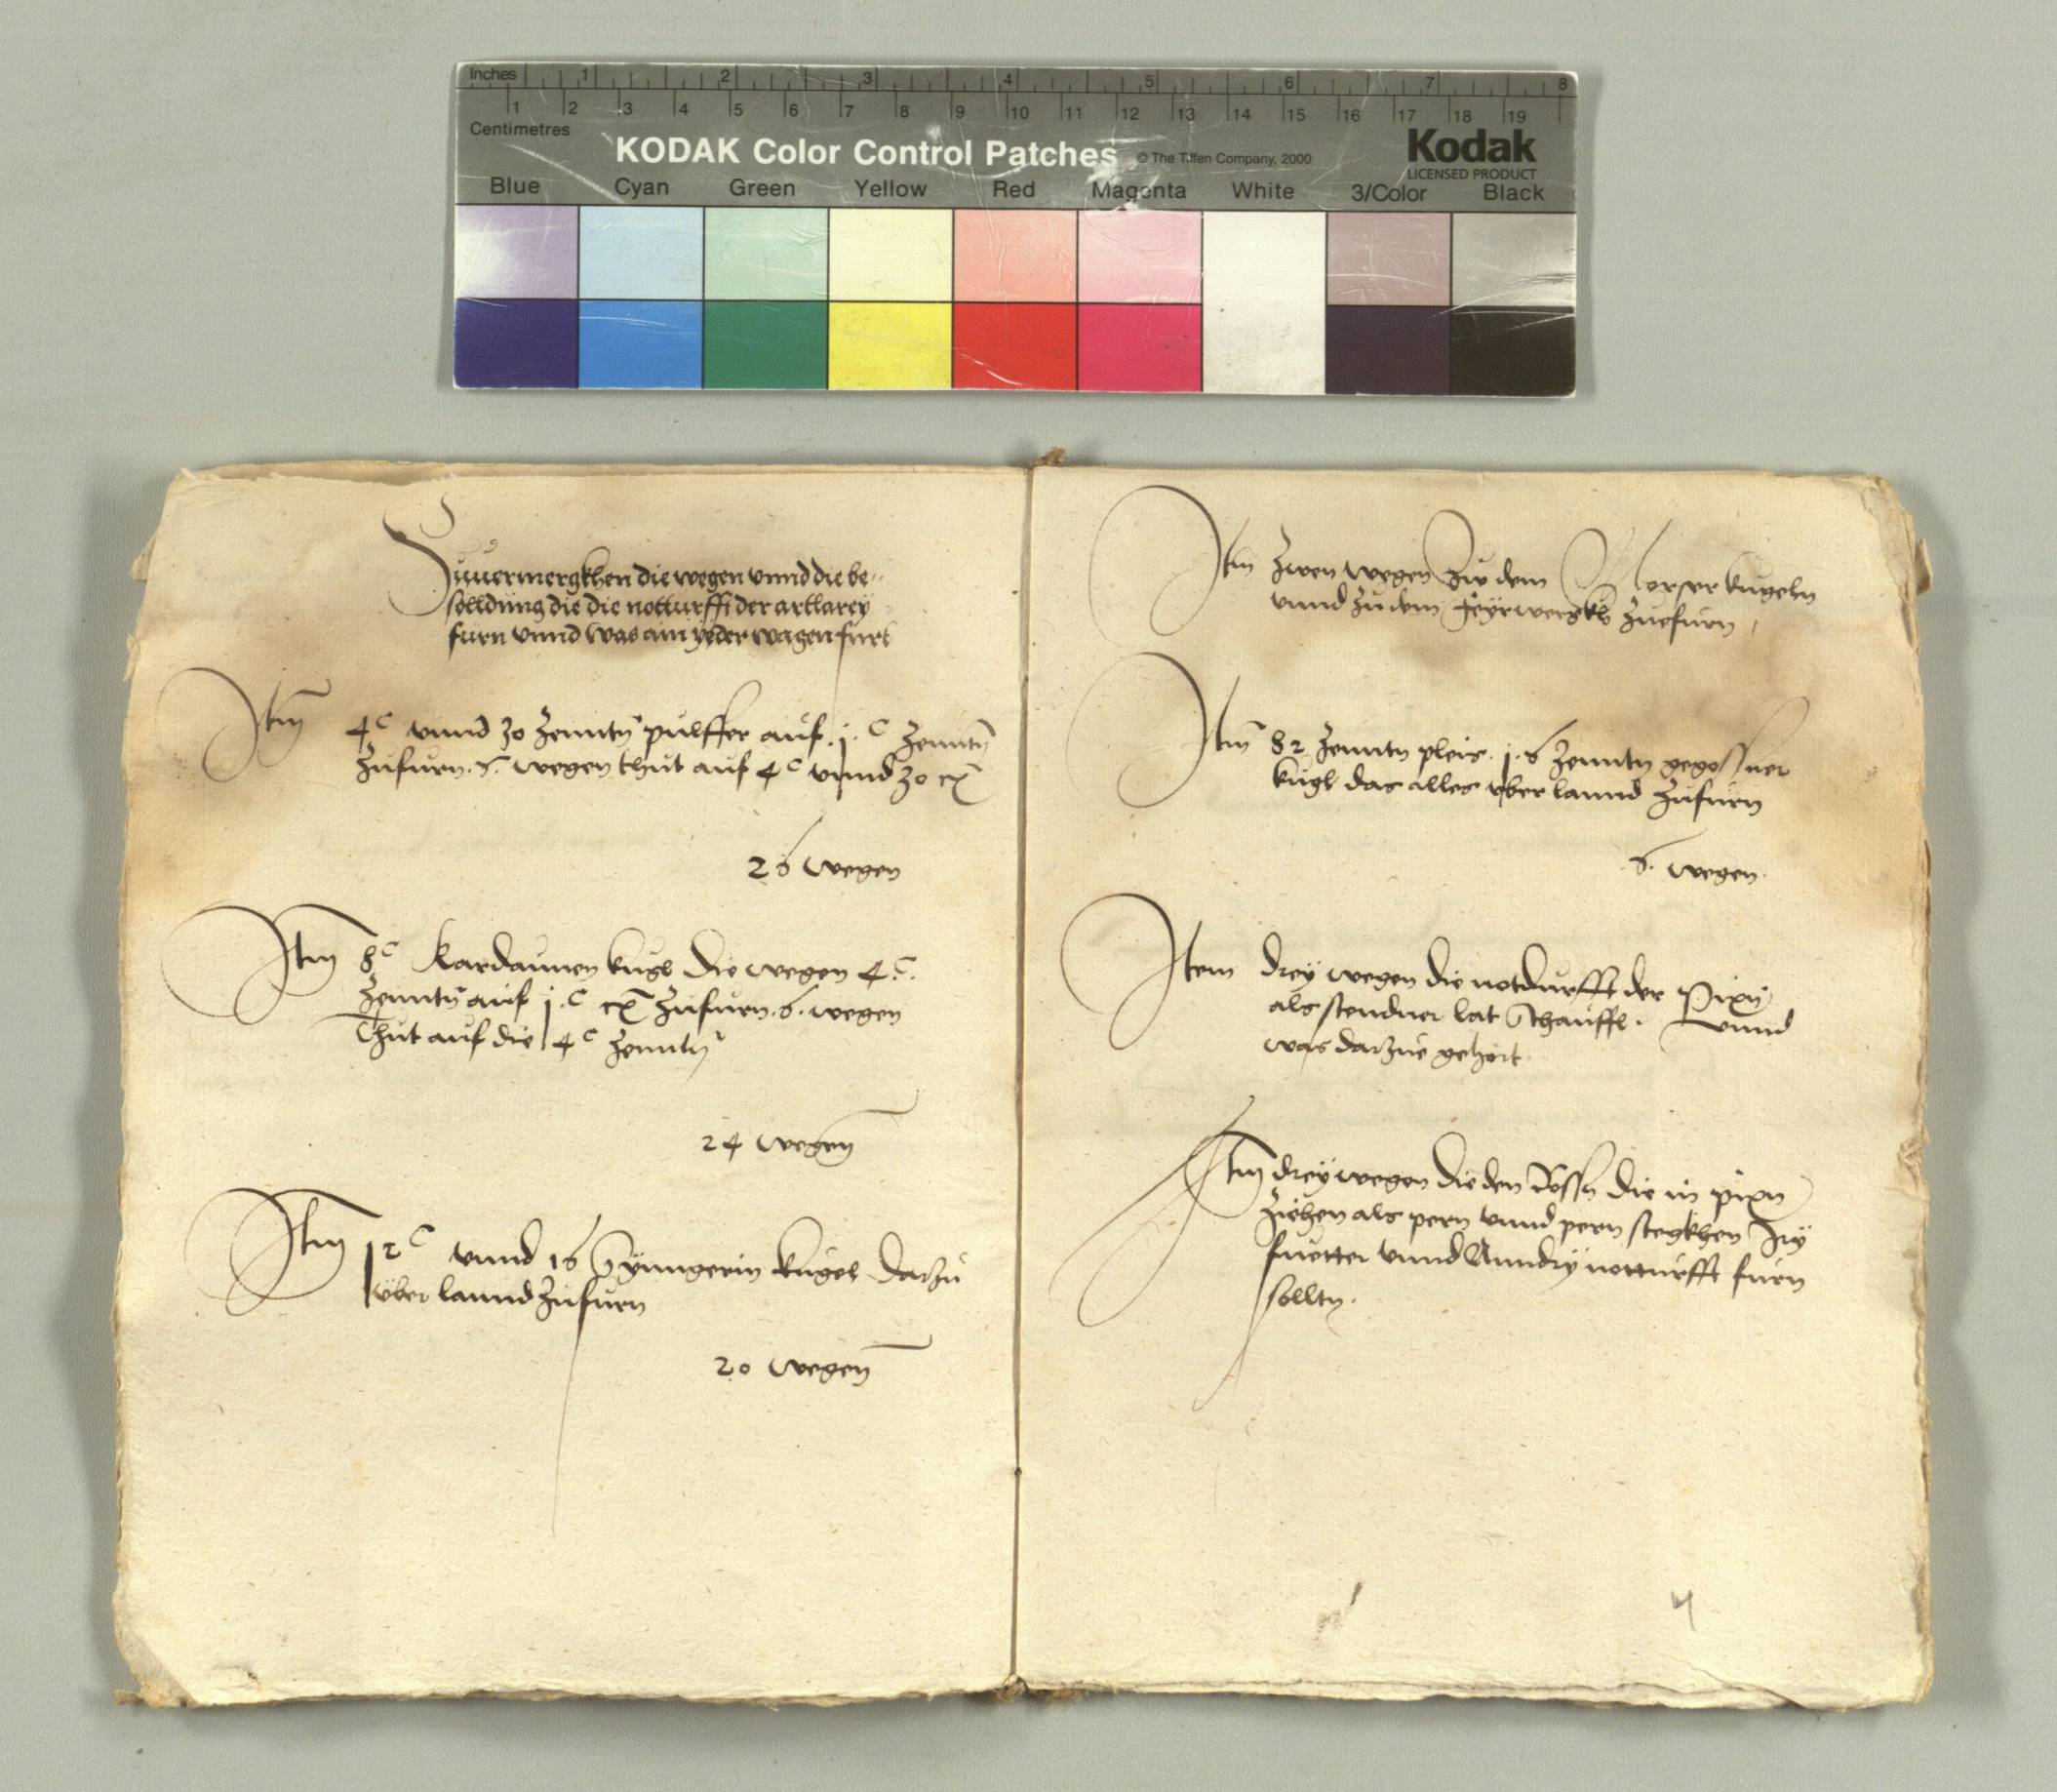 Inches 1 2 3 4 5 6 7 8
1 2 3 4 5 6 7 8 9 10 11 12 13 14 15 16 17 18 19
Centimetres
KODAK Color Control Patches © The Tiffen Company, 2000 Kodak
LICENSED PRODUCT
Blue Cyan Green Yellow Red Magenta White 3/Color Black
Zuuermergkhen die wegen vnnd die be-
solldung die die notturfft der artlarey
furn vnnd was ain yeder wagen furt
Itm 4c vnnd 30 zenntn pulffer auf j c zenntn
zufurn 6 wegen thut auf 4c vnnd 30 cz
26 wegen
Itm 8c Kardaunen kugl die wegen 4 c
zenntn auf j c cz zufurn 6 wegen
Thut auf die 4c zenntn
24 wegen
Itm 12c vnnd 16 kugel darzu
vber lannd zufurn
20 wegen
Itm zwen wegen zu dem Morser kugeln
vnnd zu dem feyrwergkh zuefurn
Itm 82 zenntn pleis j 6 zenntn gegossner
kugl das alles vber lannd zufurn
6 wegen
Item drey wegen die notdurfft der Pixn
als stendner lat schauffl vnnd
was darzue gehort
Itm drey wegen die den Rossn die in pixn
ziehen als pern vnnd pern stegkhen Iry
fuetter vnnd Anndry notturfft furn
solltn
4